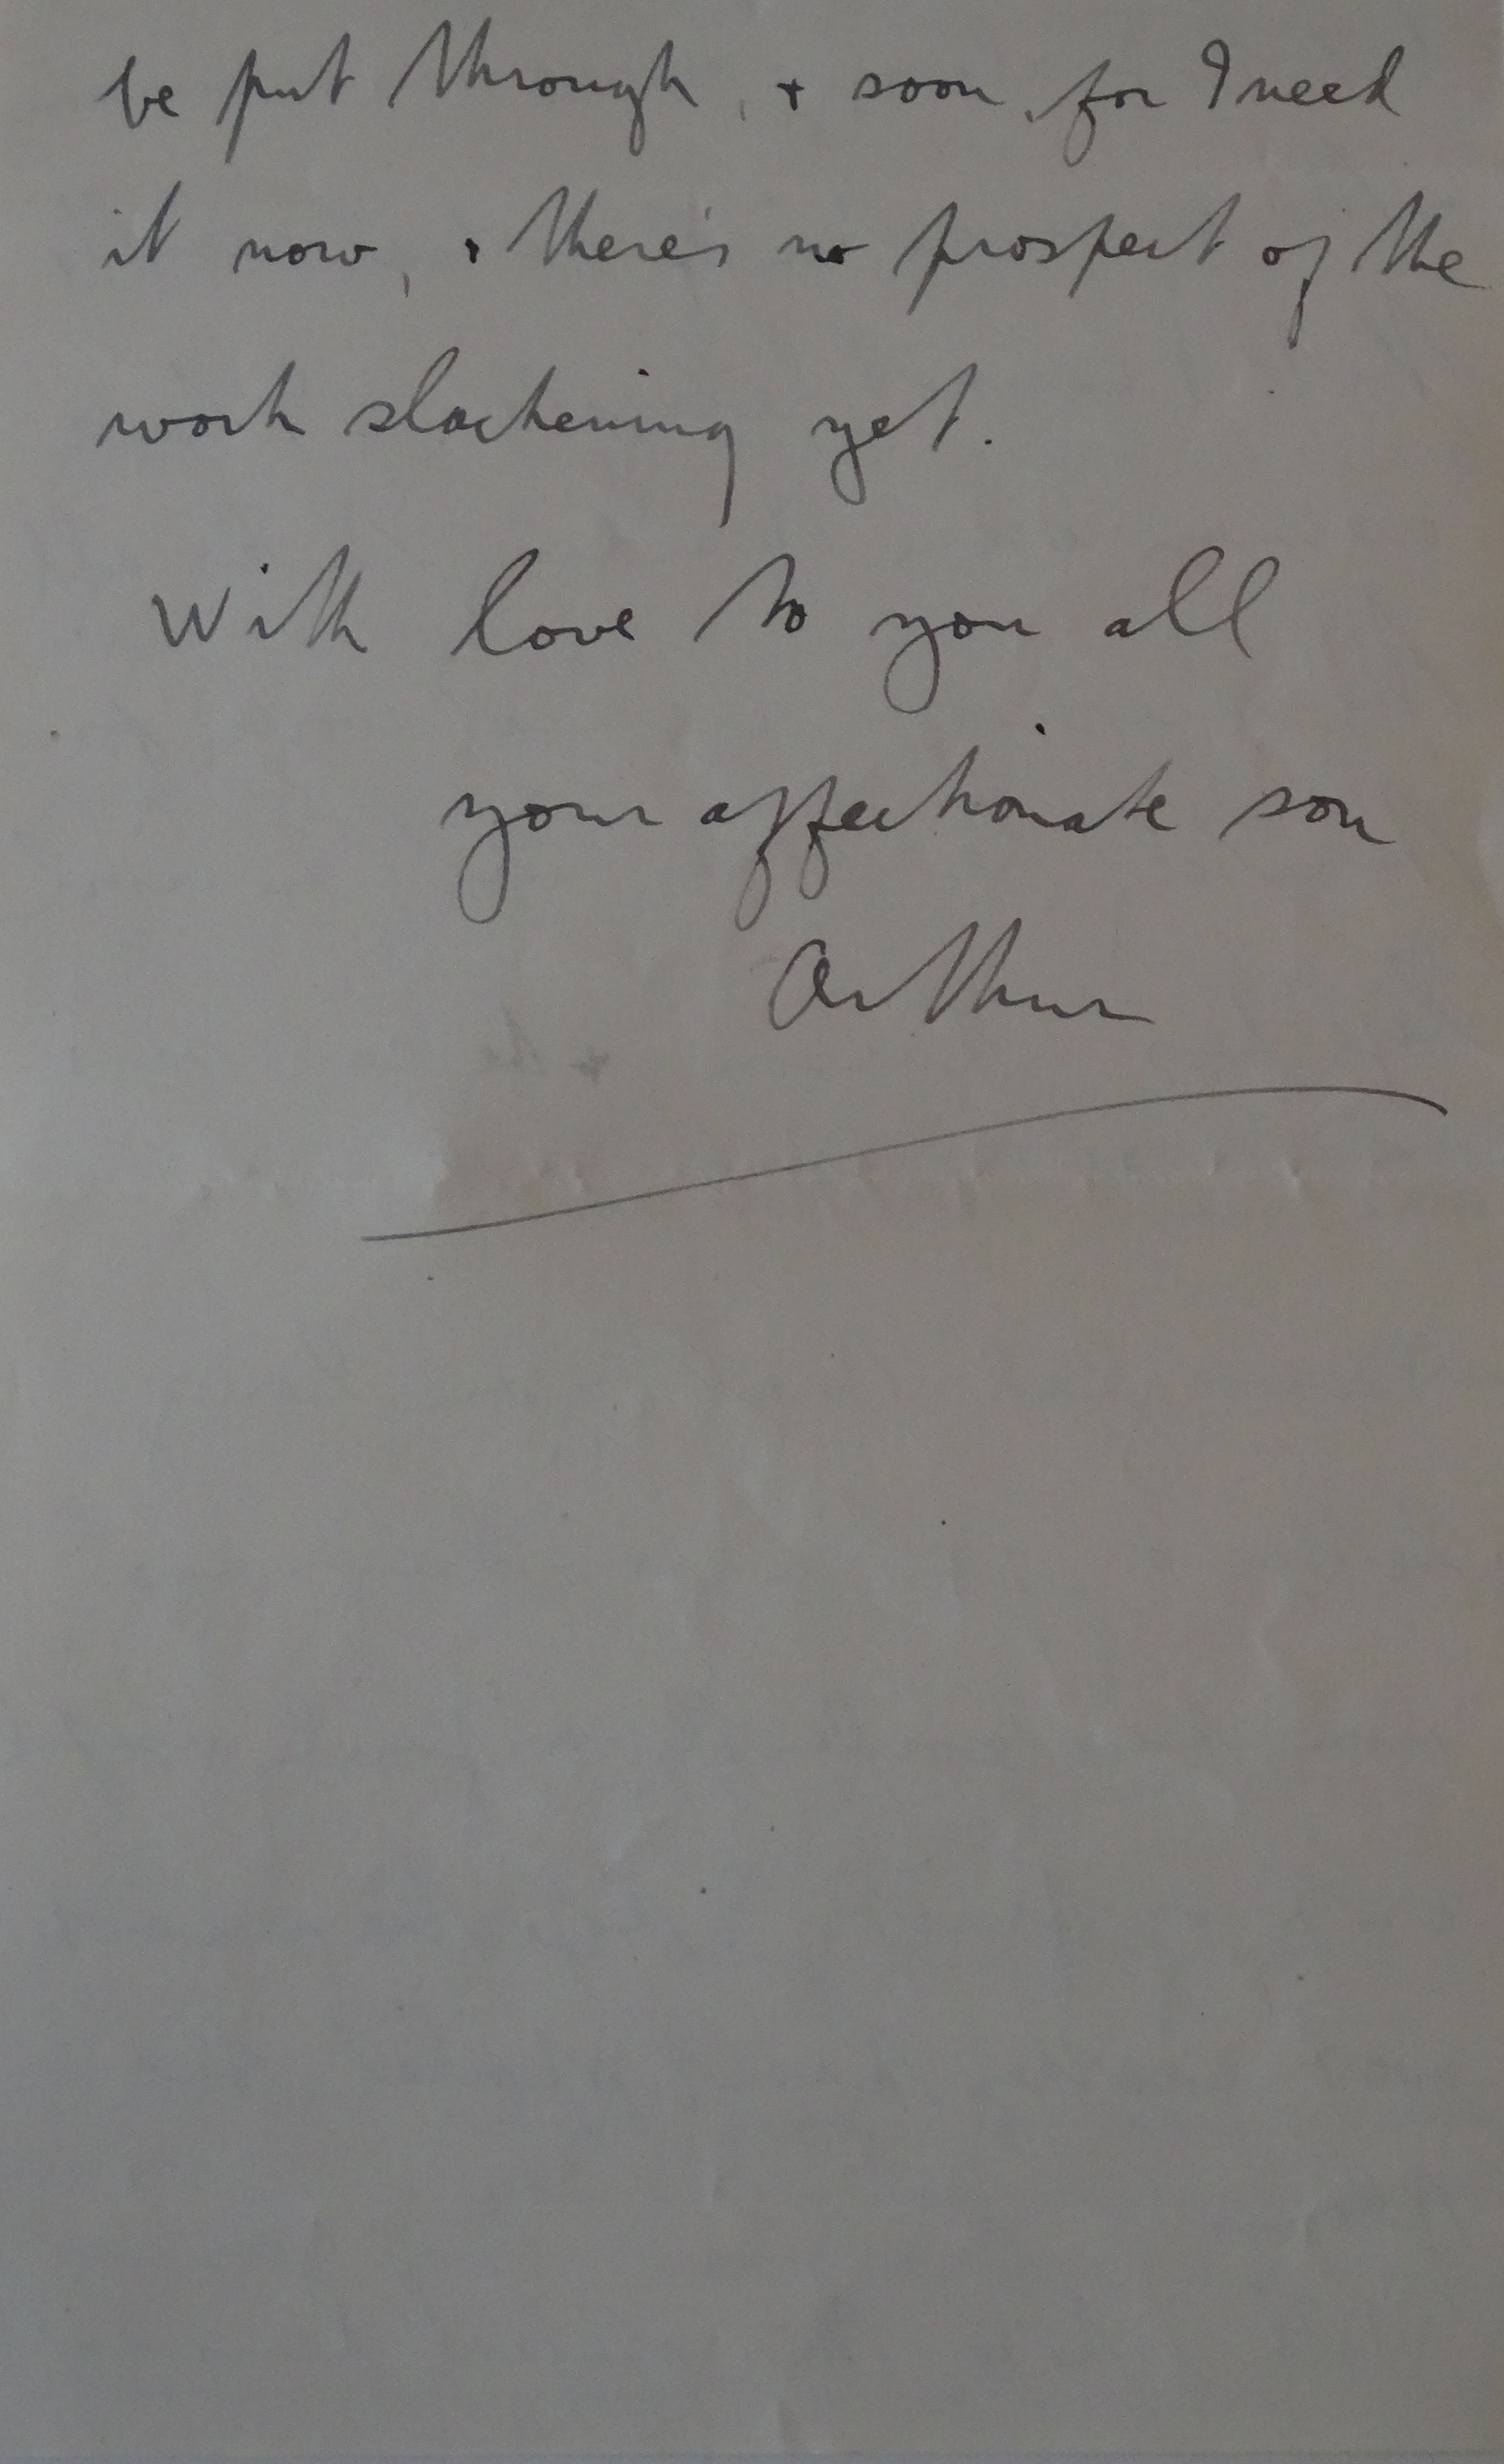 be put through, + soon, for I need
it now, + there's no prospect of the
work slackening yet.
With love to you all
your affectionate son
Arthur